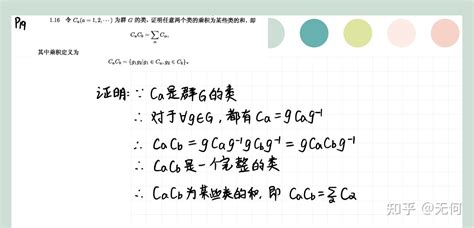 P19
1.16 令 Cₐ(a = 1, 2, ⋯) 为群 G 的类，证明任意两个类的乘积为某些类的和，即
CₐC_b = ∑ Cₐ,
其中乘积定义为
CₐC_b = {g₁g₂|g₁ ∈ Cₐ, g₂ ∈ C_b}。
证明：∵ Ca是群G的类
∴ 对于∀g∈G，都有 Ca = gCag⁻¹
∴ CaCb = gCag⁻¹gCbg⁻¹ = gCaCbg⁻¹
∴ CaCb 是一个完整的类
∴ CaCb 为某些类的和，即 CaCb = ∑Ca
知乎 @无何